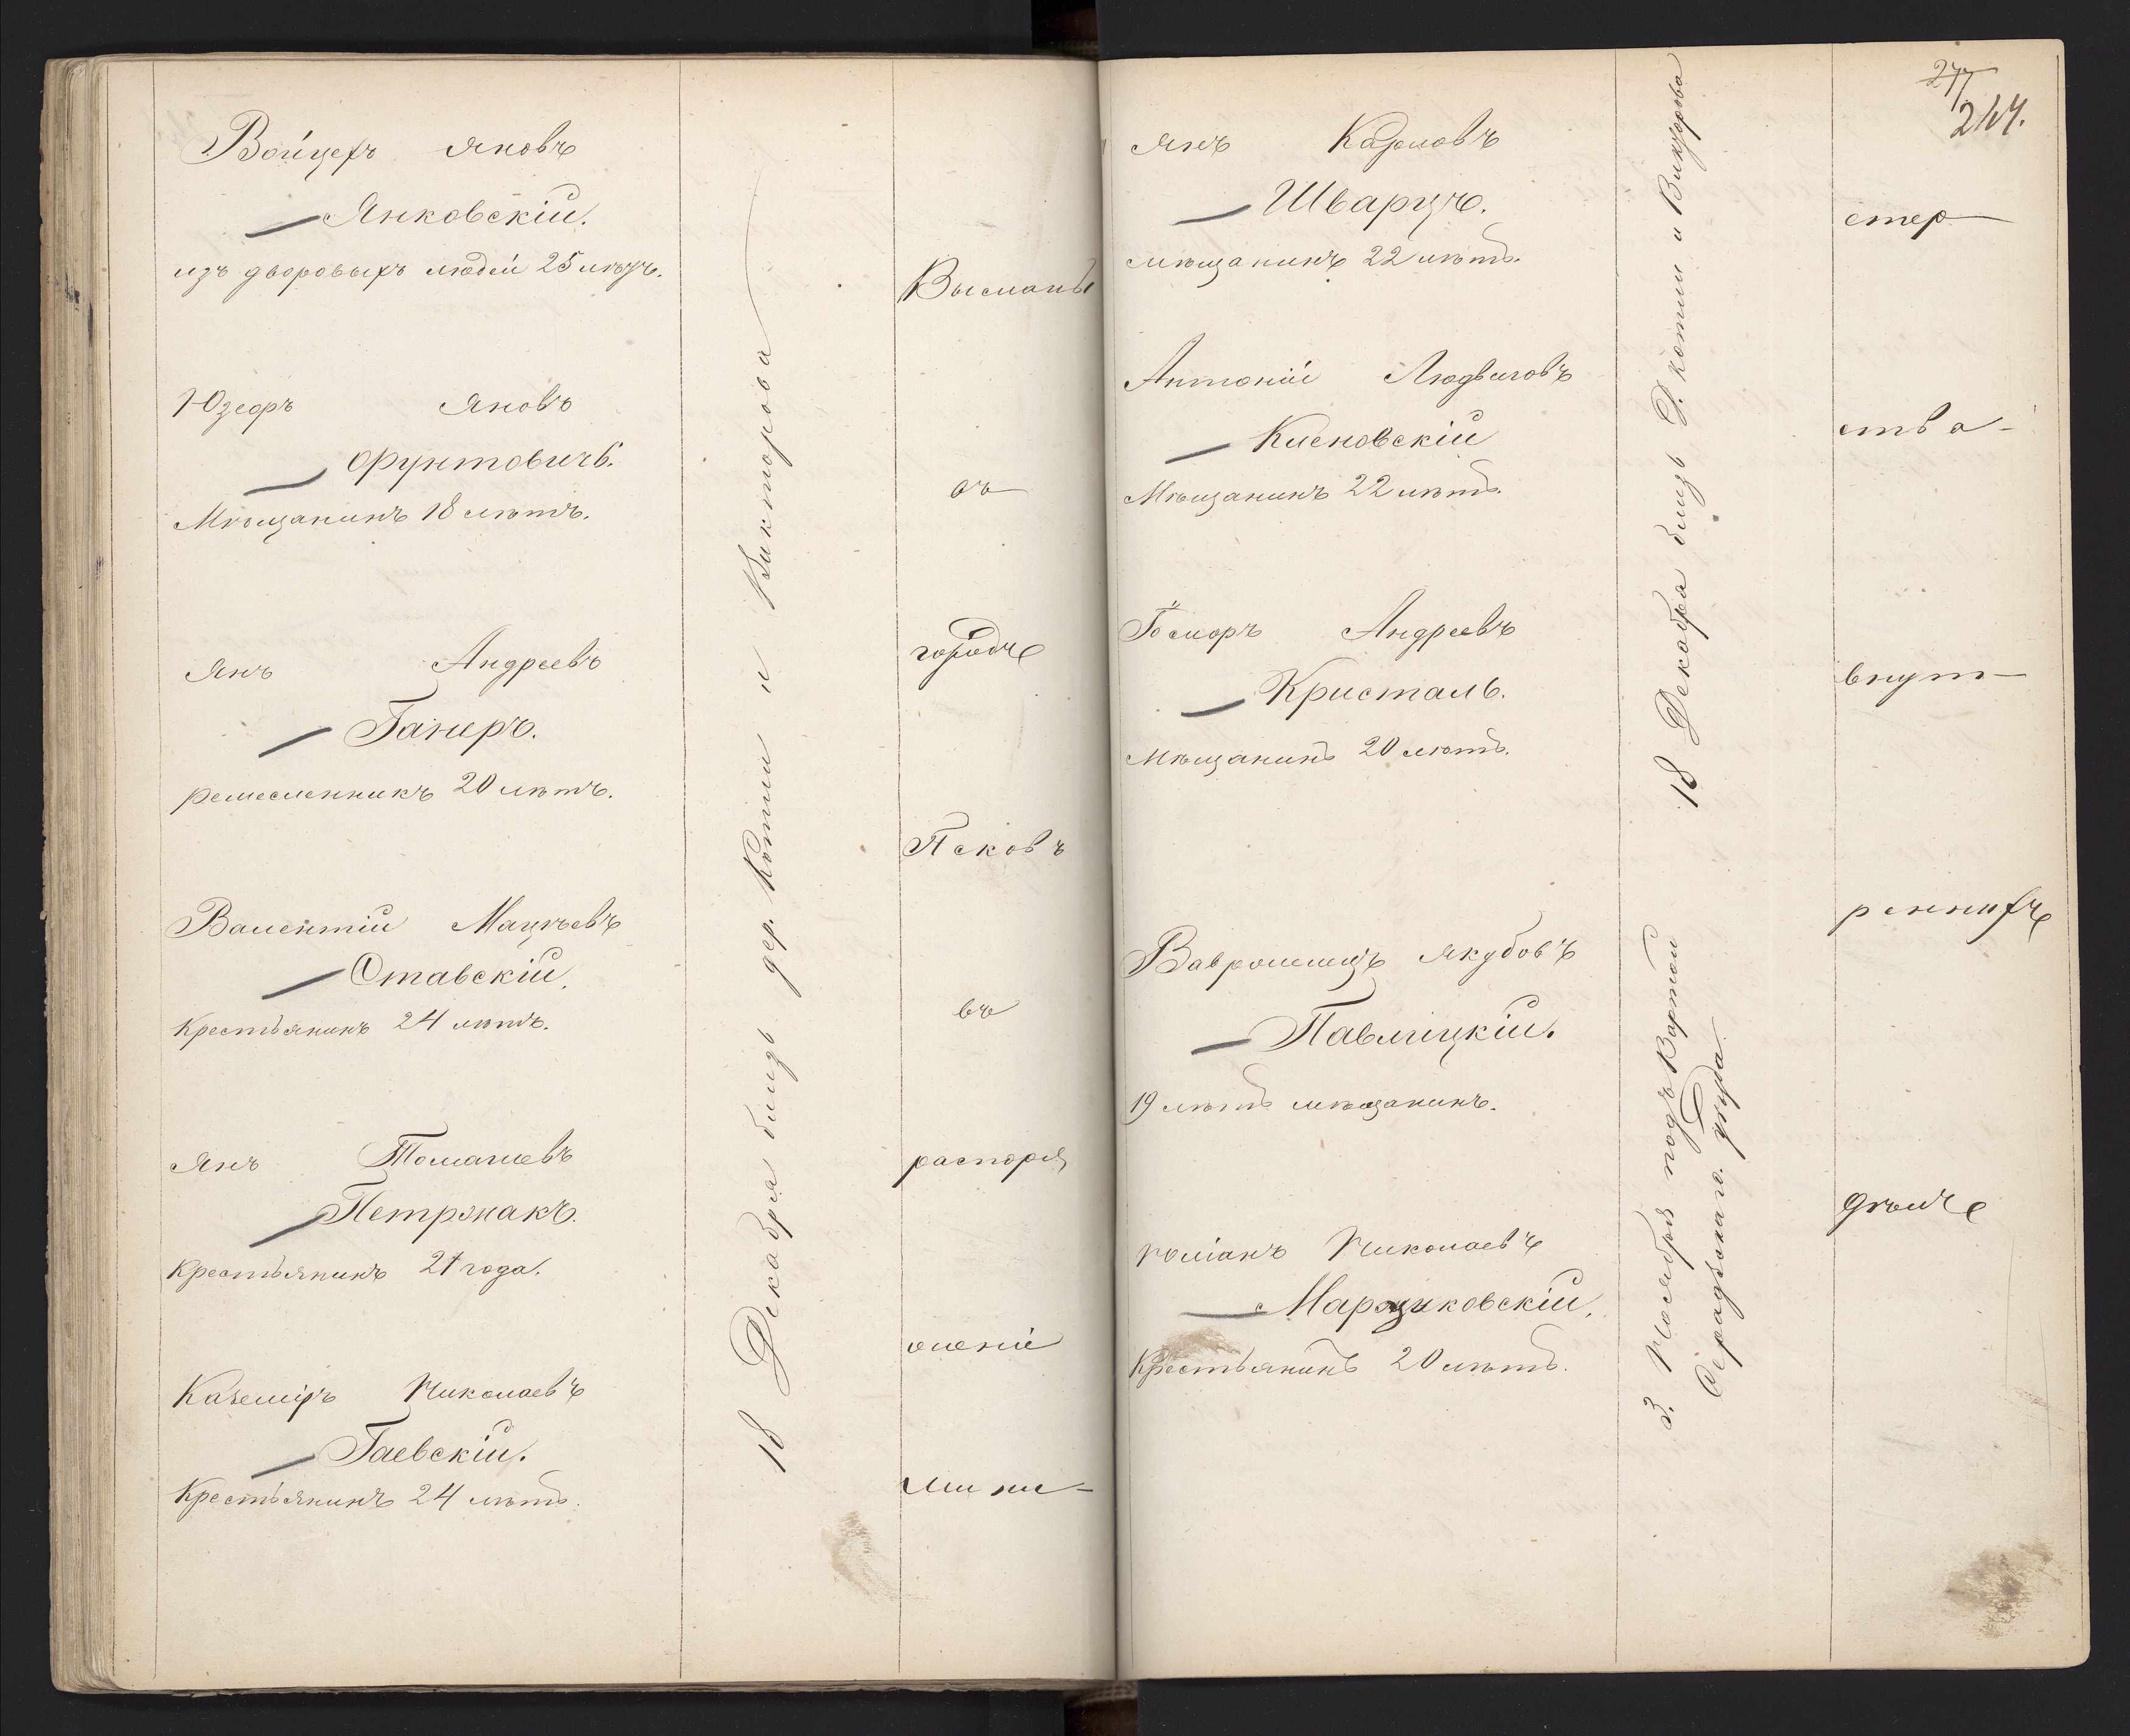 Войцехъ Яновъ
Янковскій.
изъ дворовыхъ людей 25 лѣтъ.
Юзефъ Яновъ
Фрунтовичь.
Мѣщанинъ 18 лѣтъ.
Янъ Андреевъ
Ганеръ.
ремесленникъ 20 лѣтъ.
Валентій Мацѣевъ
Ставскій.
Крестьянинъ 24 лѣтъ.
Янъ Томашевъ
Петржакъ.
Крестьянинъ 21 года.
Каземіръ Николаевъ
Гаевскій.
Крестьянинъ 24 лѣтъ.
18 Декабря близь дер. Котли и Викторова
Высланы
въ
городъ
Псковъ
въ
распоря
женіе
Мини-
277
244.
Янъ Карловъ
Шварцъ.
мѣщанинъ 22 лѣтъ.
Антоній Людвиговъ
Кисновскій
Мѣщанинъ 22 лѣтъ.
Андреевъ
Кристаль.
Мѣщанинъ 20 лѣтъ.
Якубовъ
Павлицкій.
19 лѣтъ мѣщанинъ.
Романъ Николаевъ
Марциковскій.
Крестьянинъ 20 лѣтъ.
18 Декабря близь Д. Котли и Викторова
3. Ноября подъ Вартой
Сѣрадзскаго уѣзда.
стер
ства-
внут-
реннихъ
дѣлъ